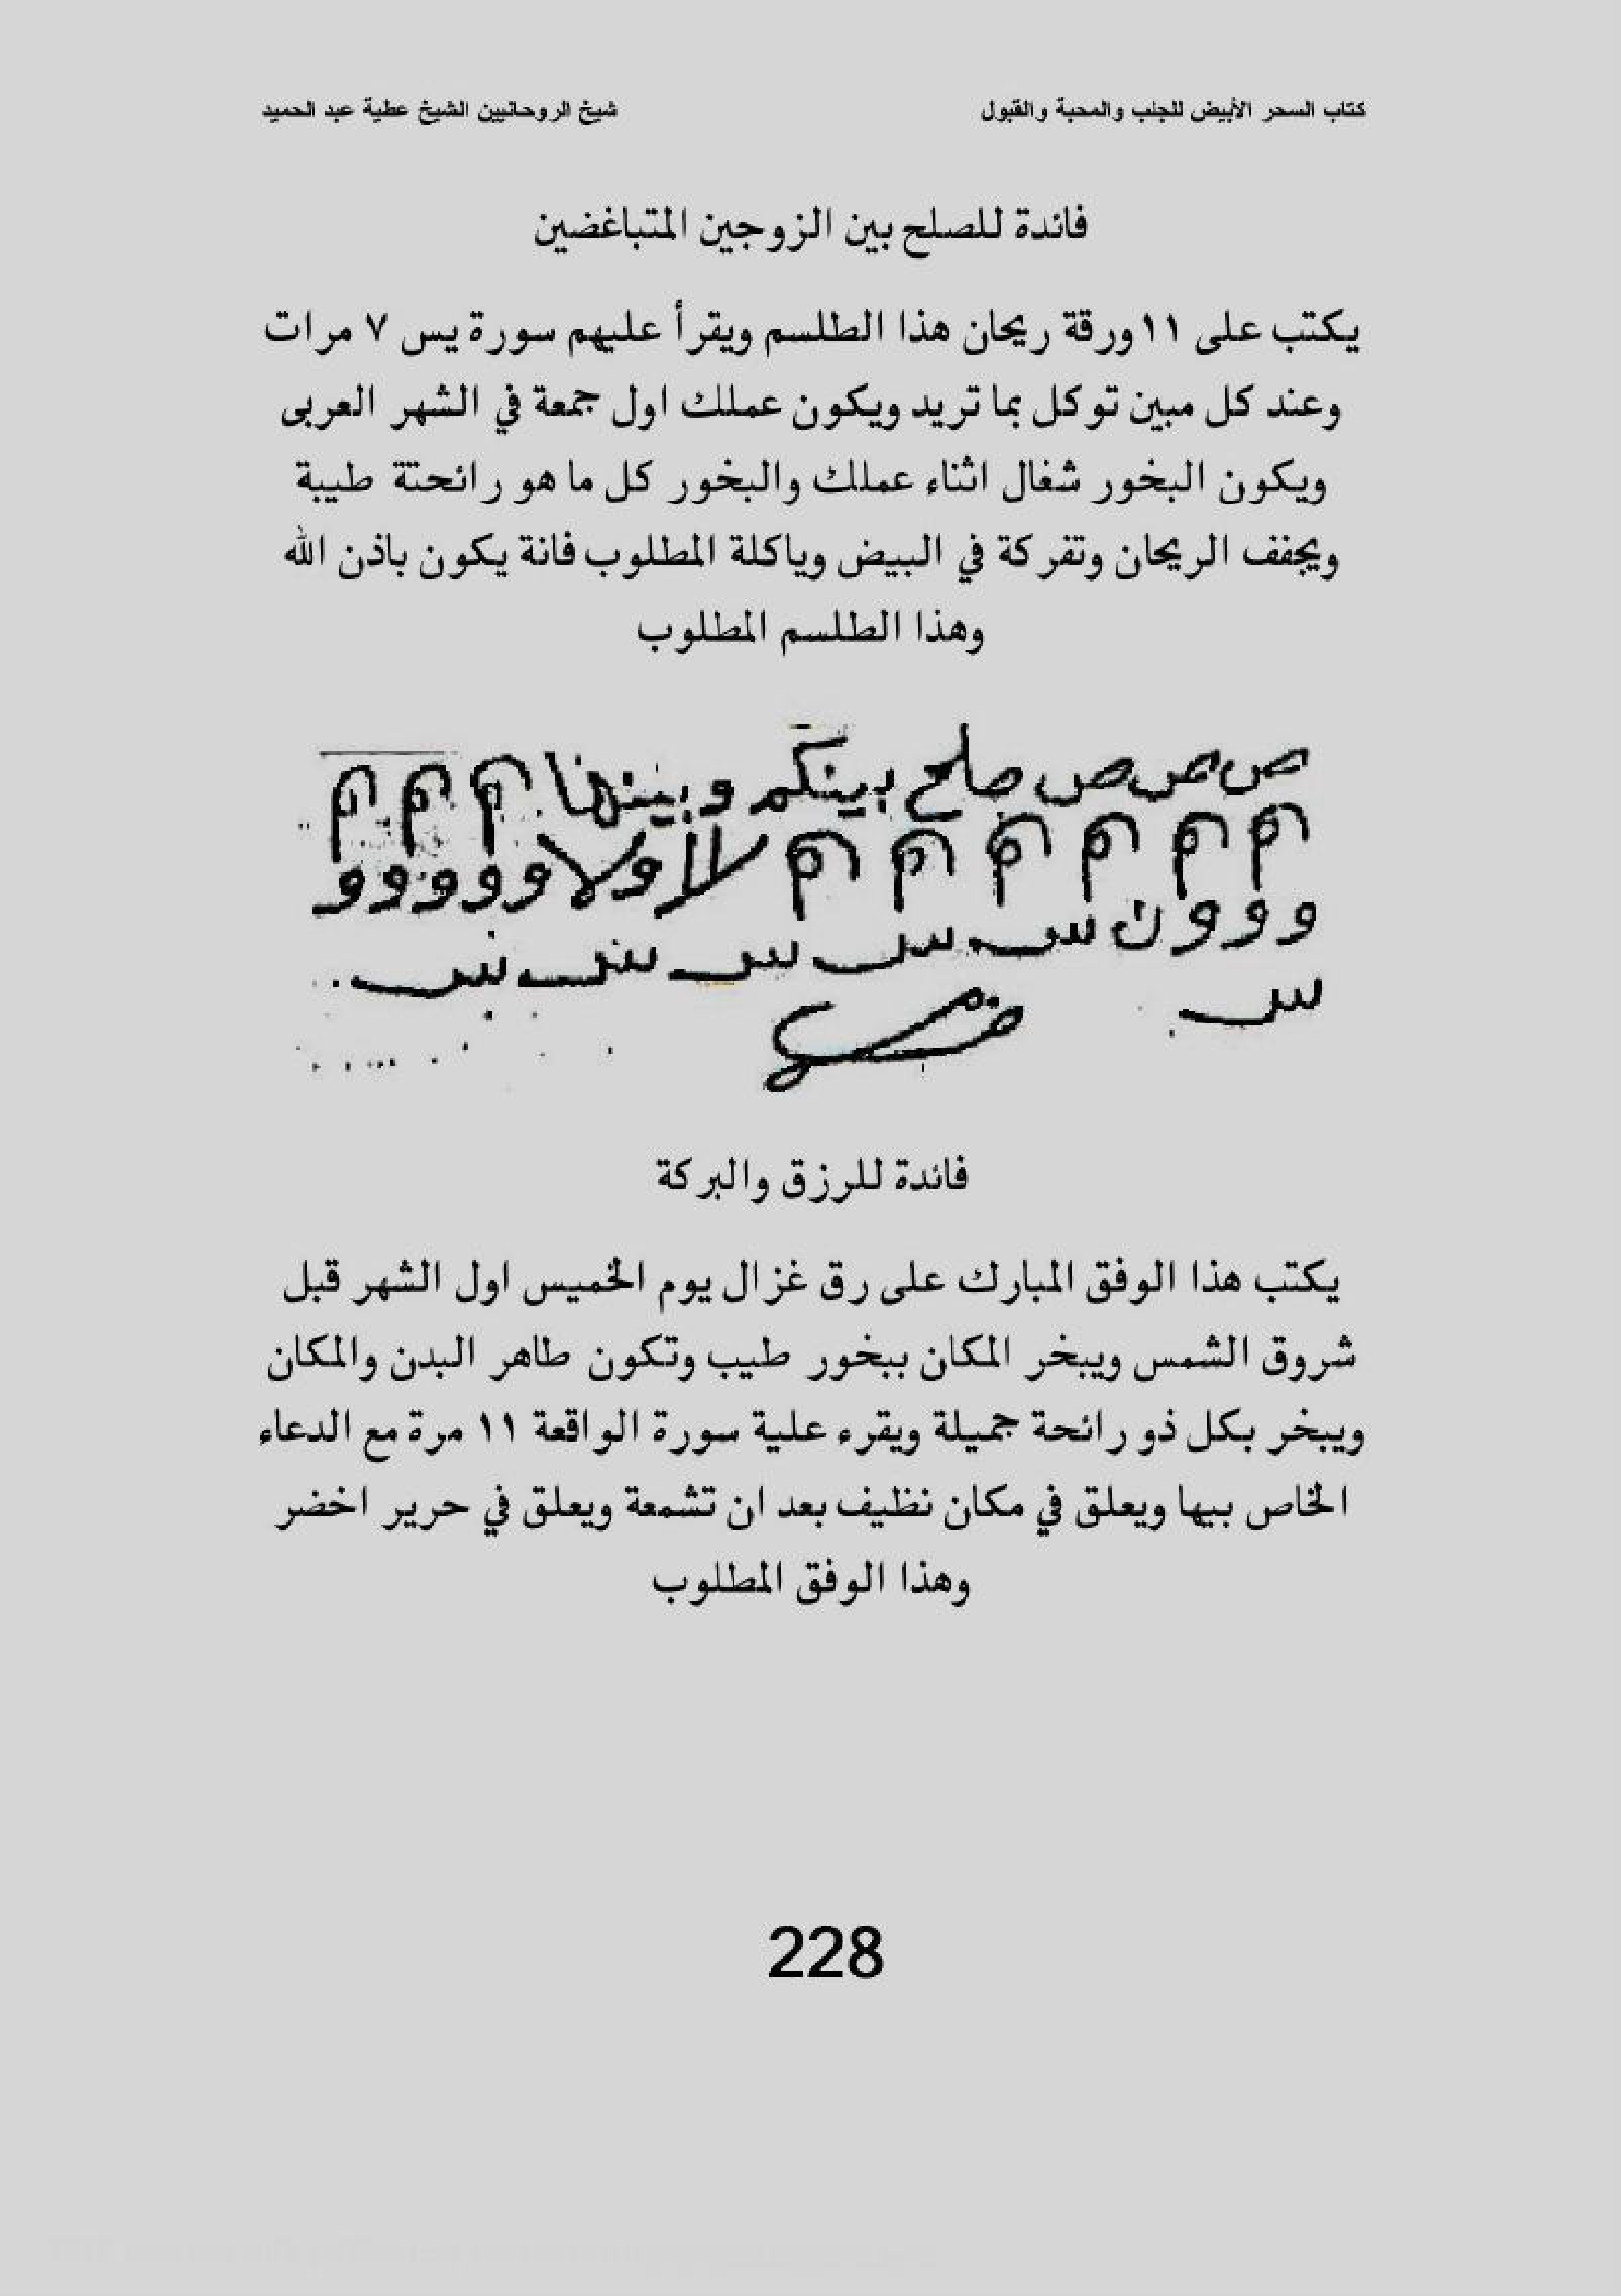 كتاب السحر الأبيض للجلب والمحبة والقبول
شيخ الروحانيين الشيخ عطية عبد الحميد
فائدة للصلح بين الزوجين المتباغضين
يكتب على ١١ ورقة ريحان هذا الطلسم ويقرأ عليهم سورة يس ٧ مرات
وعند كل مبين توكل بما تريد ويكون عملك اول جمعة في الشهر العربى
ويكون البخور شغال اثناء عملك والبخور كل ما هو رائحتة طيبة
ويجفف الريحان وتفركة في البيض وياكلة المطلوب فانة يكون باذن الله
وهذا الطلسم المطلوب
ص ص ص صلح بينكم وبينها م م م
م م م م م م لا اولا و و و و و
و و و ن س س س س س
س
فائدة للرزق والبركة
يكتب هذا الوفق المبارك على رق غزال يوم الخميس اول الشهر قبل
شروق الشمس ويبخر المكان ببخور طيب وتكون طاهر البدن والمكان
ويبخر بكل ذو رائحة جميلة ويقرء علية سورة الواقعة ١١ مرة مع الدعاء
الخاص بيها ويعلق في مكان نظيف بعد ان تشمعة ويعلق في حرير اخضر
وهذا الوفق المطلوب
228